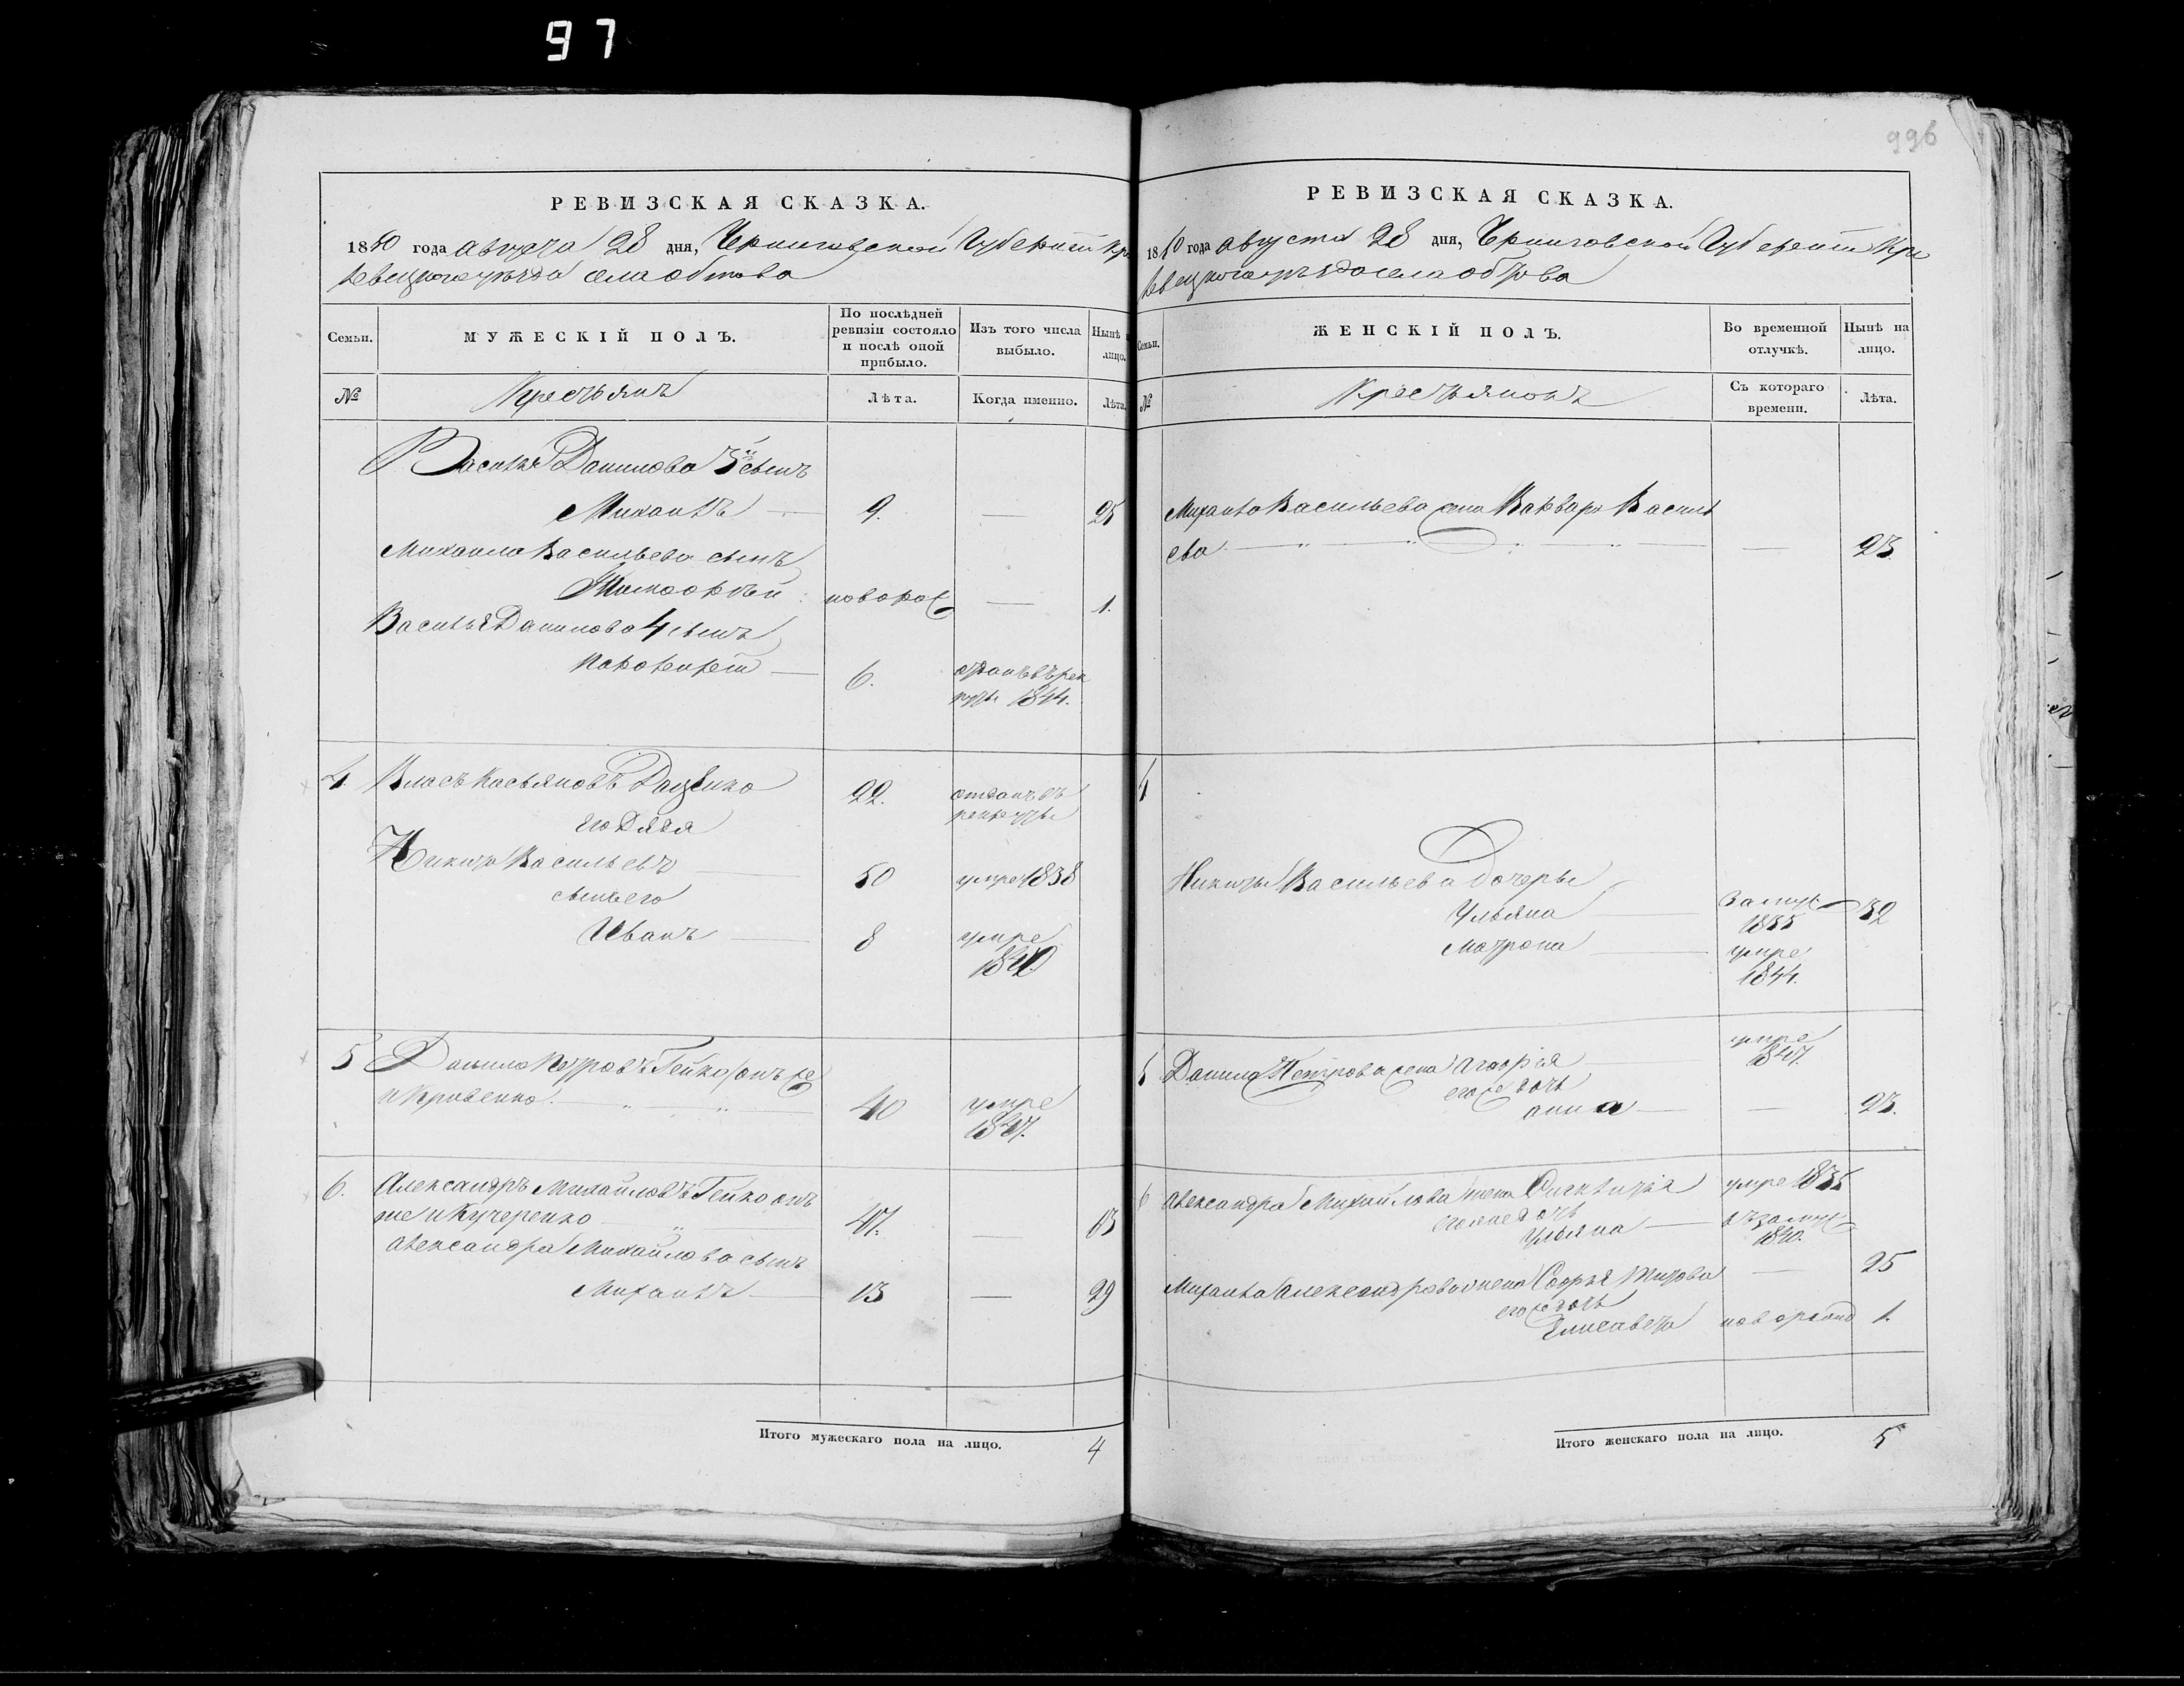 97
996
РЕВИЗСКАЯ СКАЗКА.
1850 года августа 28 дня, Черниговской Губернии Кро
левецкого уезда села Обтова
Семьи. МУЖЕСКІЙ ПОЛЪ. По послѣдней ревизіи состояло и послѣ оной прибыло. Изъ того числа выбыло. Нынѣ на лицо.
№ Крестьянъ Лѣта. Когда именно. Лѣта.
Василья Данилова 3й сынъ
Михаилъ 9. — 25
Михаила Васильева сынъ
новорож — 1.
Василья Данилова 4 сынъ
6. отданъ въ рек
руты 1844.
4. Власъ Касьяновъ Даценко 22. отданъ въ
рекруты
его дядя
Никита Васильевъ 50 умре 1838
сынъ его
Иванъ 8 умре
1840
5 Данило Петровъ Гейко онъ же
и Кривенко 40 умре
1847.
6. Александръ Михайловъ Гейко онъ
же и Кучеренко 47. — 63
Александра Михайлова сынъ
Михаилъ 13 — 29
Итого мужескаго пола на лицо. 4
РЕВИЗСКАЯ СКАЗКА.
1850 года августа 28 дня, Черниговской Губернии Кро
левецкого уезда села Обтова
Семьи. ЖЕНСКІЙ ПОЛЪ. Во временной отлучкѣ. Нынѣ на лицо.
№ Крестьянокъ Съ котораго времени. Лѣта.
Михаила Васильева жена Варвара Василь
ева — 23.
4
Никиты Васильева дочеры
Ульяна замуж 1835 32
Матрона умре
1844.
5 Данила Петрова жена Агафія умре
1847.
его же дочь
Анна — 23.
6 Александра Михайлова жена умре 1835
его же дочь
Ульяна въ замуж
1840.
Михаила Александрова жена Софья Титова — 25
его же дочь
Елисавета новорожд 1.
Итого женскаго пола на лицо. 5